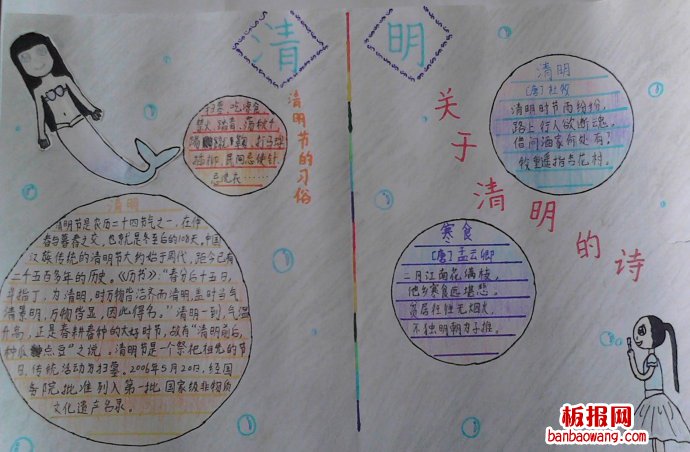 清
明
扫墓、吃寒食
禁火、踏青、荡秋千
蹴鞠、打马球
插柳、民间忌使针
忌洗衣……
清明节的习俗
清明
清明节是农历二十四节气之一,在仲
春与暮春之交,也就是冬至后的108天。中国
汉族传统的清明节大约始于周代,距今已有
二千五百多年的历史。《历书》:“春分后十五日,
斗指丁,为清明,时万物皆洁齐而清明,盖时当气
清景明,万物皆显,因此得名。”清明一到,气温
升高,正是春耕春种的大好时节,故有“清明前后,
种瓜点豆”之说。清明节是一个祭祀祖先的节
日,传统活动为扫墓。2006年5月20日,经国
务院批准列入第一批国家级非物质
文化遗产名录。
关于清明的诗
清明
[唐]杜牧
清明时节雨纷纷,
路上行人欲断魂。
借问酒家何处有?
牧童遥指杏花村。
寒食
[唐]孟云卿
二月江南花满枝,
他乡寒食远堪悲。
贫居往往无烟火,
不独明朝为子推。
板报网
banbaowang.com